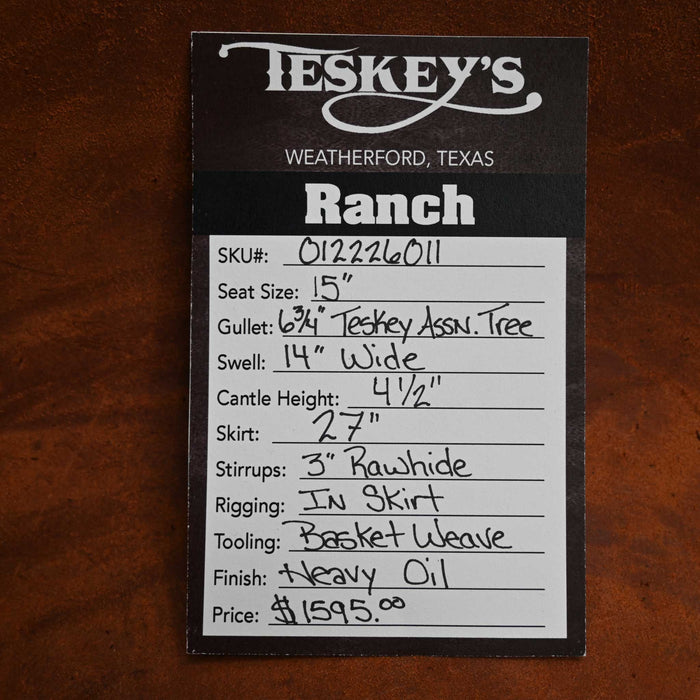 TESKEY'S
WEATHERFORD, TEXAS
Ranch
SKU#: 012226011
Seat Size: 15"
Gullet: 6 3/4" Teskey Assn. Tree
Swell: 14" Wide
Cantle Height: 4 1/2"
Skirt: 27"
Stirrups: 3" Rawhide
Rigging: In Skirt
Tooling: Basket Weave
Finish: Heavy Oil
Price: $1595.00